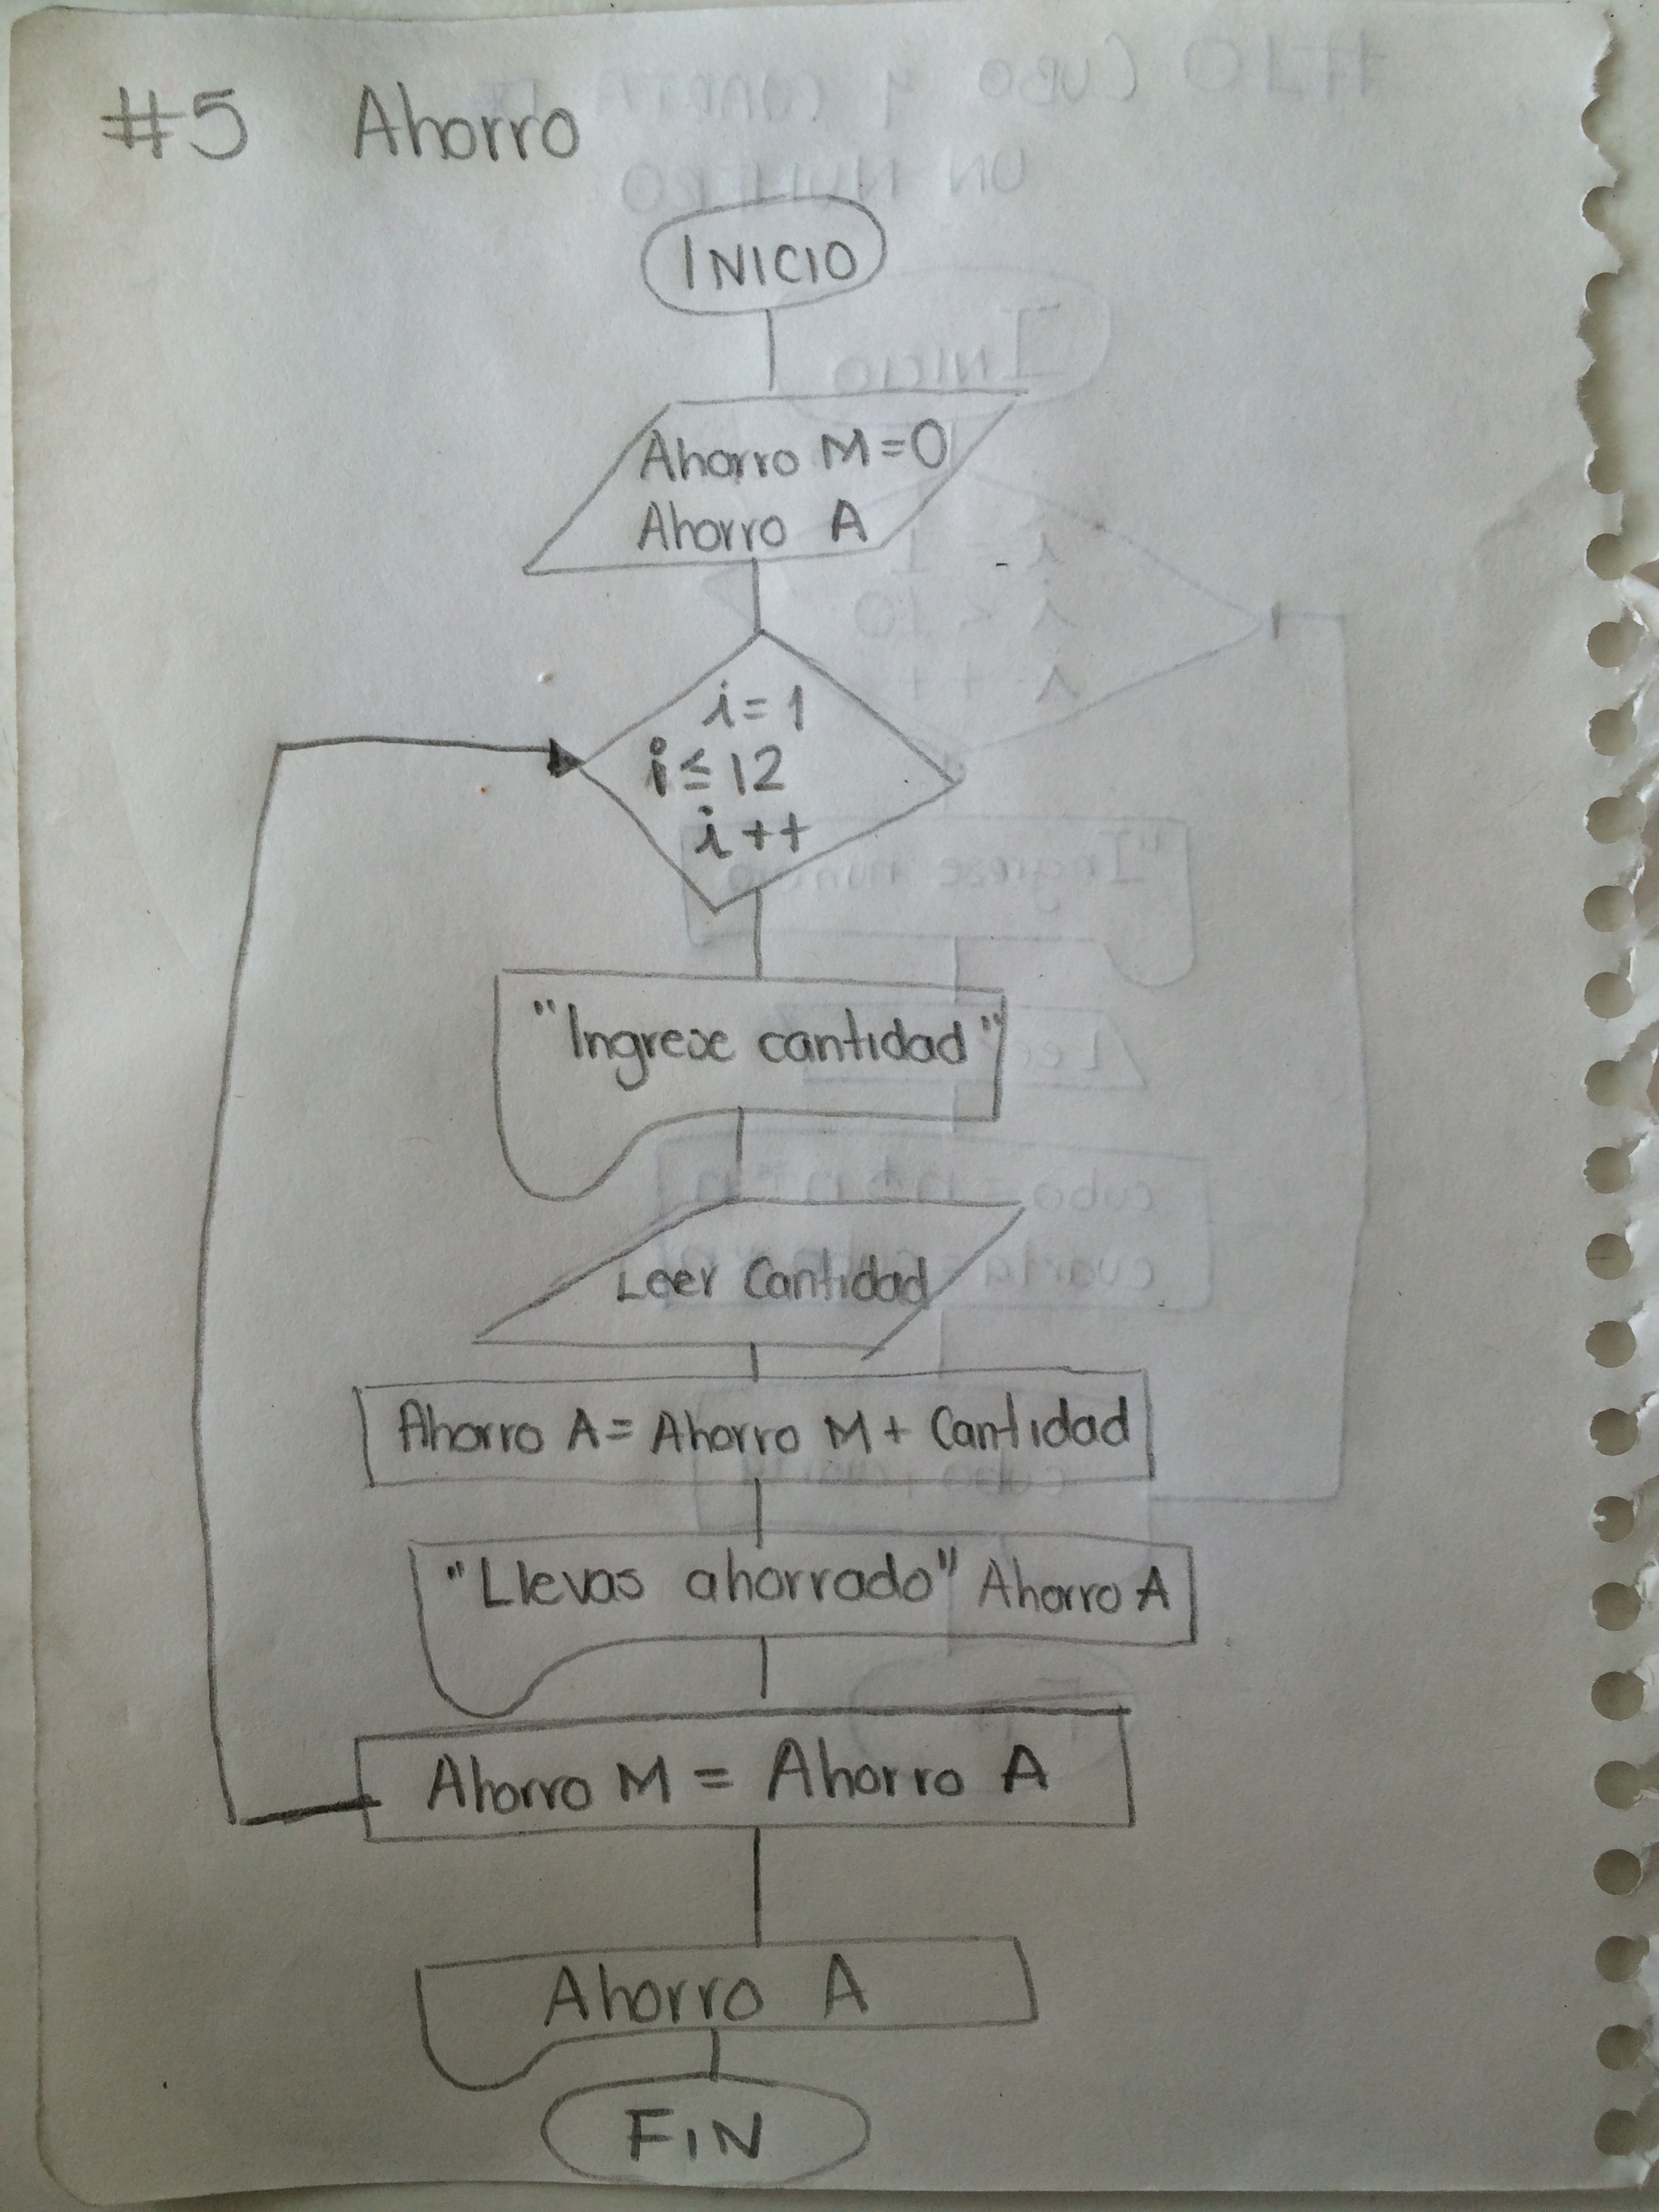 #5 Ahorro
INICIO
Ahorro M=0
Ahorro A
i=1
i≤12
i++
"Ingrese cantidad"
Leer Cantidad
Ahorro A= Ahorro M+ Cantidad
"Llevas ahorrado" Ahorro A
Ahorro M = Ahorro A
Ahorro A
FIN